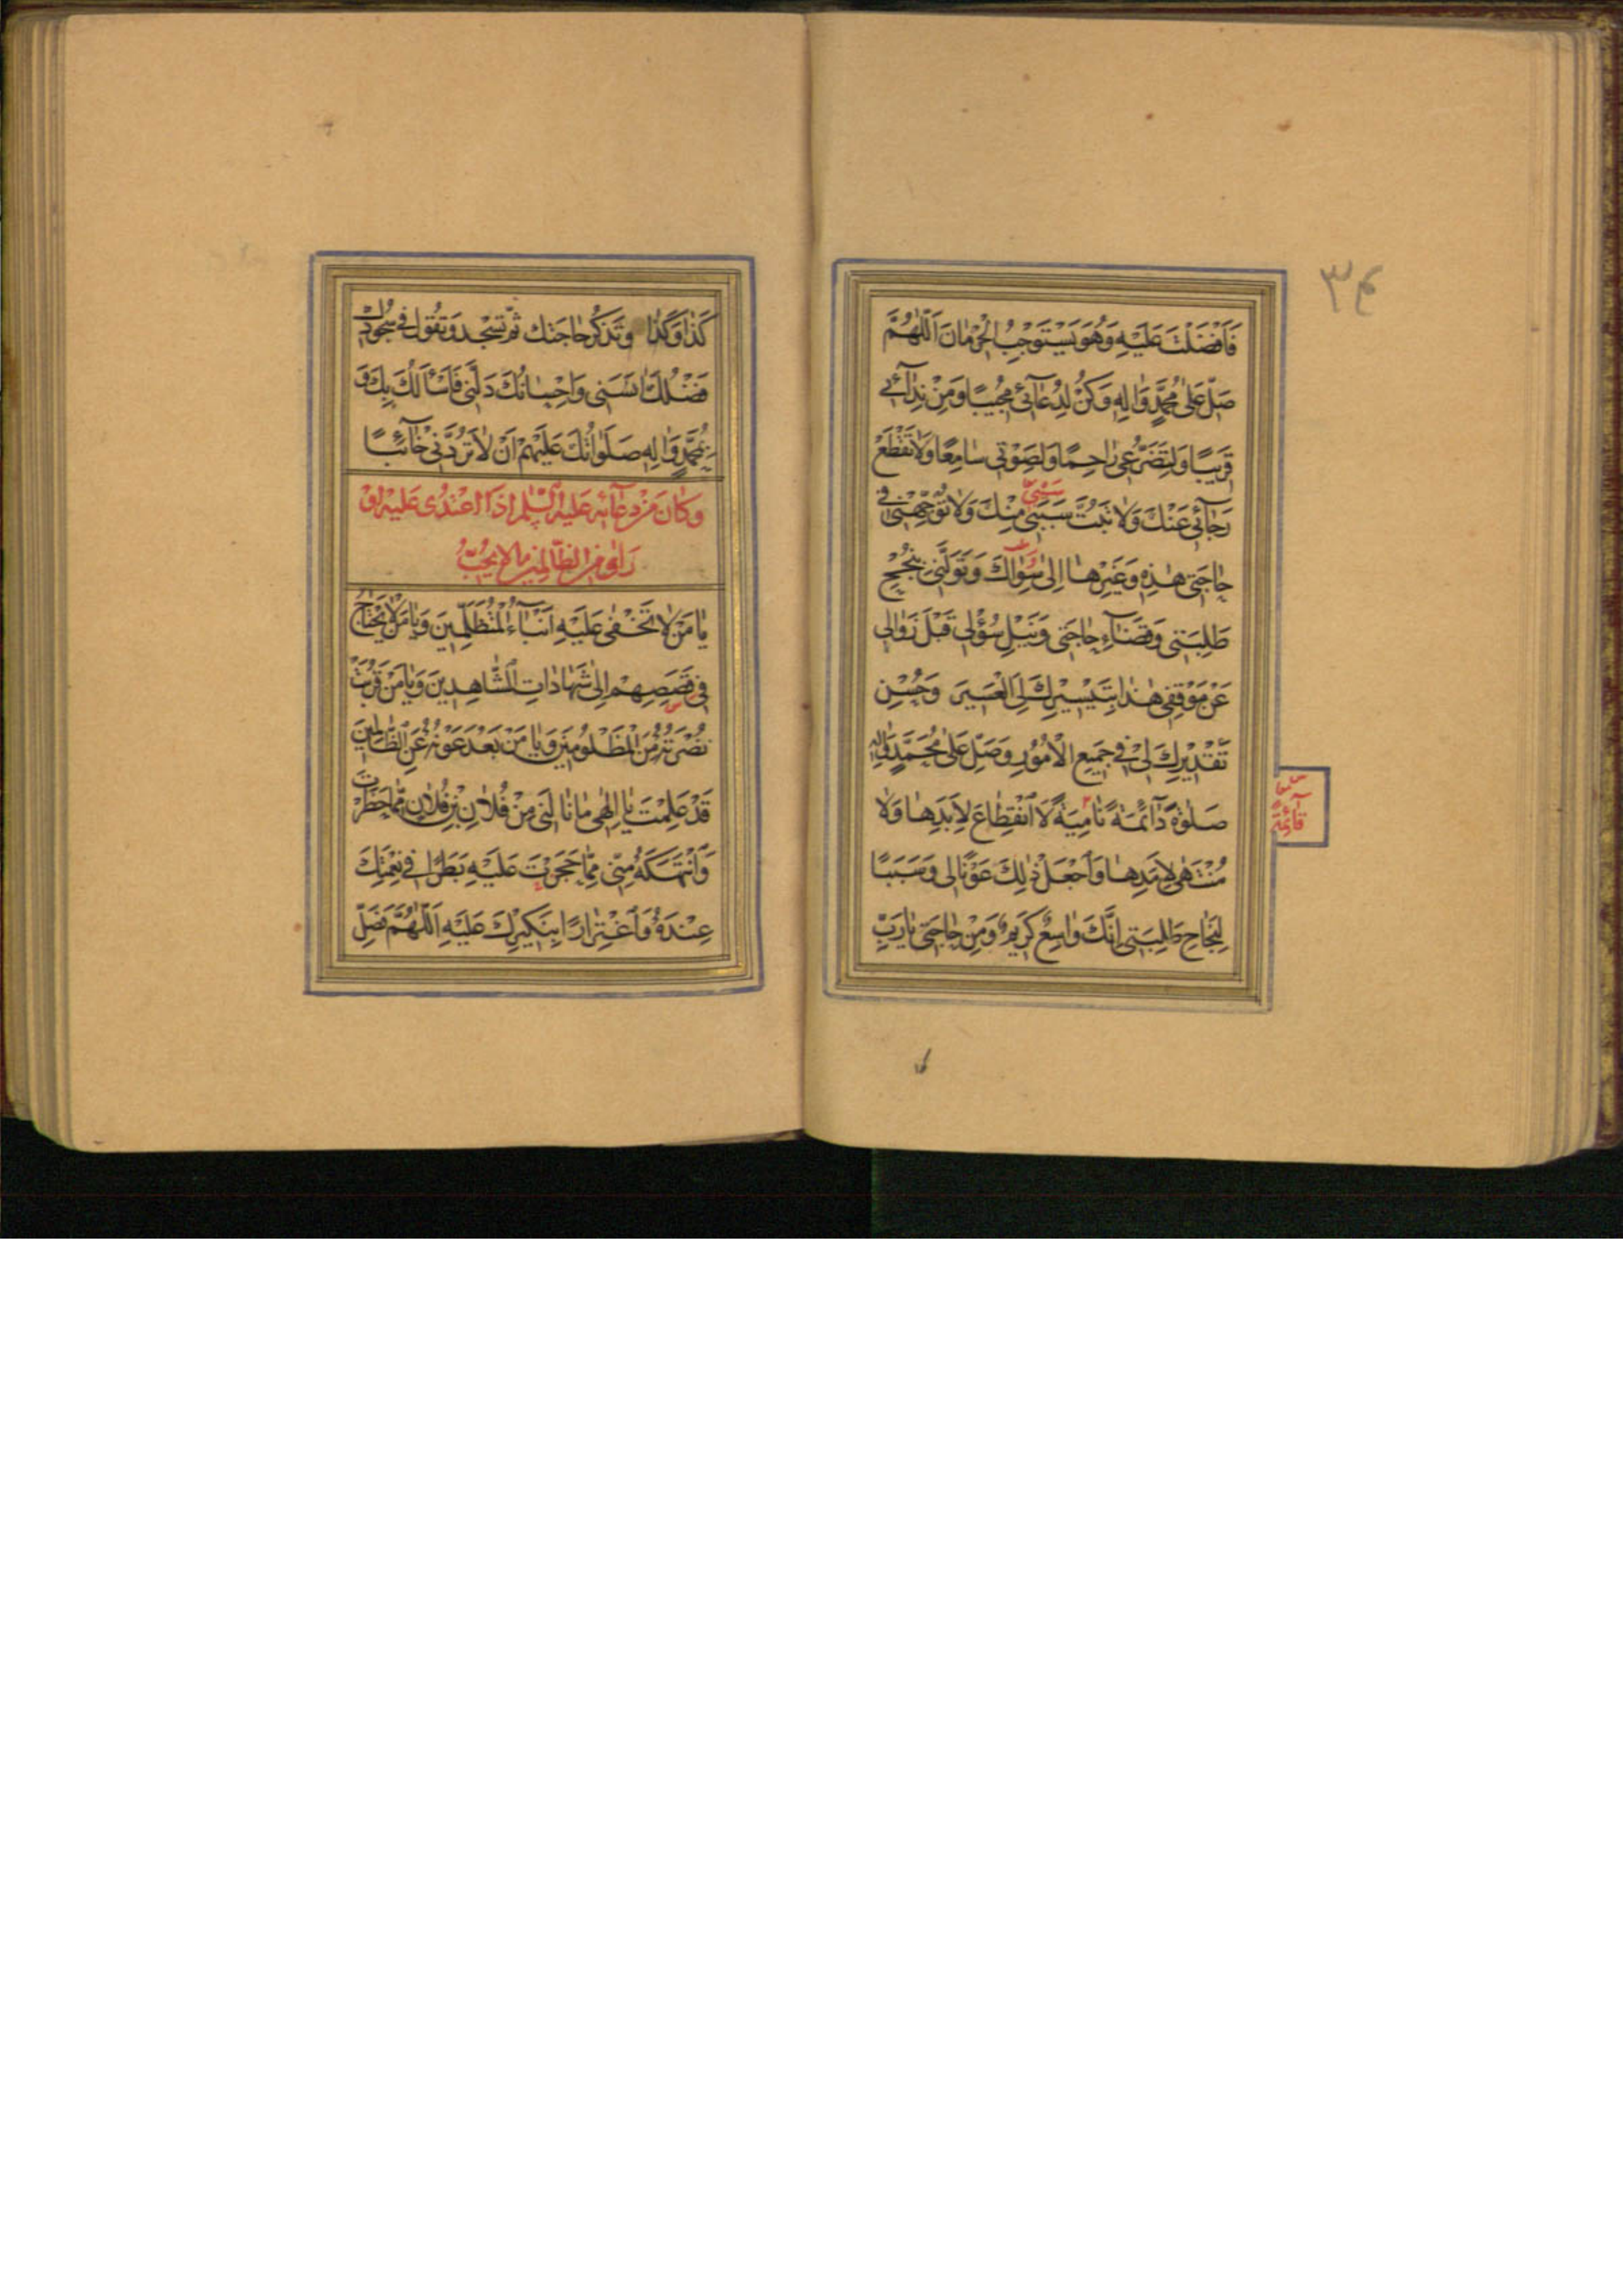 ۳۴
فَأَفْضَلْتَ عَلَيْهِ وَهُوَ يَسْتَوْجِبُ الْحِرْمَانَ اَللّٰهُمَّ
صَلِّ عَلٰى مُحَمَّدٍ وَاٰلِهِ وَكُنْ لِدُعَآئِي مُجِيبًا وَمِنْ نِدَآئِي
قَرِيبًا وَلِتَضَرُّعِي رَاحِمًا وَلِصَوْتِي سَامِعًا وَلَا تَقْطَعْ
رَجَآئِي عَنْكَ وَلَا تَبُتَّ سَبَبِي مِنْكَ وَلَا تُوَجِّهْنِي فِي
حَاجَتِي هٰذِهِ وَغَيْرِهَا اِلٰى سِوَاكَ وَتَوَلَّنِي بِنُجْحِ
طَلِبَتِي وَقَضَآءِ حَاجَتِي وَنَيْلِ سُؤْلِي قَبْلَ زَوَالِي
عَنْ مَوْقِفِي هٰذَا بِتَيْسِيرِكَ لِيَ الْعَسِيرَ وَحُسْنِ
تَقْدِيرِكَ لِي فِي جَمِيعِ الْاُمُورِ وَصَلِّ عَلٰى مُحَمَّدٍ وَاٰلِهِ
صَلٰوةً دَآئِمَةً نَامِيَةً لَا انْقِطَاعَ لِاَبَدِهَا وَلَا
مُنْتَهٰى لِاَمَدِهَا وَاجْعَلْ ذٰلِكَ عَوْنًا لِي وَسَبَبًا
لِنَجَاحِ طَلِبَتِي اِنَّكَ وَاسِعٌ كَرِيمٌ وَمِنْ حَاجَتِي يَا رَبِّ
كَذَا وَكَذَا وَتَذْكُرُ حَاجَتَكَ ثُمَّ تَسْجُدُ وَتَقُولُ فِي سُجُودِكَ
فَضْلُكَ اٰنَسَنِي وَاِحْسَانُكَ دَلَّنِي فَاَسْأَلُكَ بِكَ وَ
بِمُحَمَّدٍ وَاٰلِهِ صَلَوَاتُكَ عَلَيْهِمْ اَنْ لَا تَرُدَّنِي خَآئِبًا
وَكَانَ مِنْ دُعَآئِهِ عَلَيْهِ السَّلَامُ اِذَا اعْتُدِيَ عَلَيْهِ اَوْ
رَاٰى مِنَ الظَّالِمِينَ مَا لَا يُحِبُّ
يَا مَنْ لَا تَخْفٰى عَلَيْهِ اَنْبَآءُ الْمُتَظَلِّمِينَ وَيَا مَنْ لَا يَحْتَاجُ
فِي قَصَصِهِمْ اِلٰى شَهَادَاتِ الشَّاهِدِينَ وَيَا مَنْ قَرُبَتْ
نُصْرَتُهُ مِنَ الْمَظْلُومِينَ وَيَا مَنْ بَعُدَ عَوْنُهُ عَنِ الظَّالِمِينَ
قَدْ عَلِمْتَ يَا اِلٰهِي مَا نَالَنِي مِنْ فُلَانِ بْنِ فُلَانٍ مِمَّا حَظَرْتَ
وَانْتَهَكَهُ مِنِّي مِمَّا حَجَرْتَ عَلَيْهِ بَطَرًا فِي نِعْمَتِكَ
عِنْدَهُ وَاغْتِرَارًا بِنَكِيرِكَ عَلَيْهِ اَللّٰهُمَّ فَصَلِّ